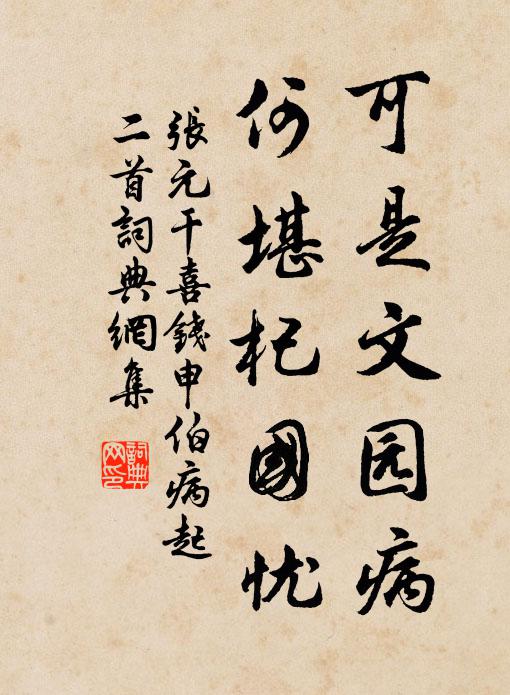 可是文园病
何堪杞國忧
張元干喜錢申伯病起
二首詞典網集
詞典
网印